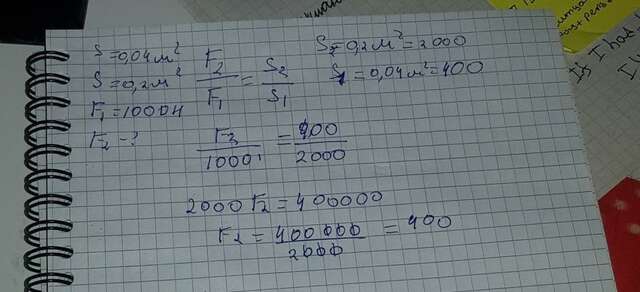 S = 0,04 м²
S = 0,2 м²
F₁ = 1000 Н
F₂ - ?
F₂/F₁ = S₂/S₁
S₂ = 0,2 м² = 2000
S₁ = 0,04 м² = 400
F₂/1000 = 400/2000
2000 F₂ = 400000
F₂ = 400000/2000 = 400
If I had